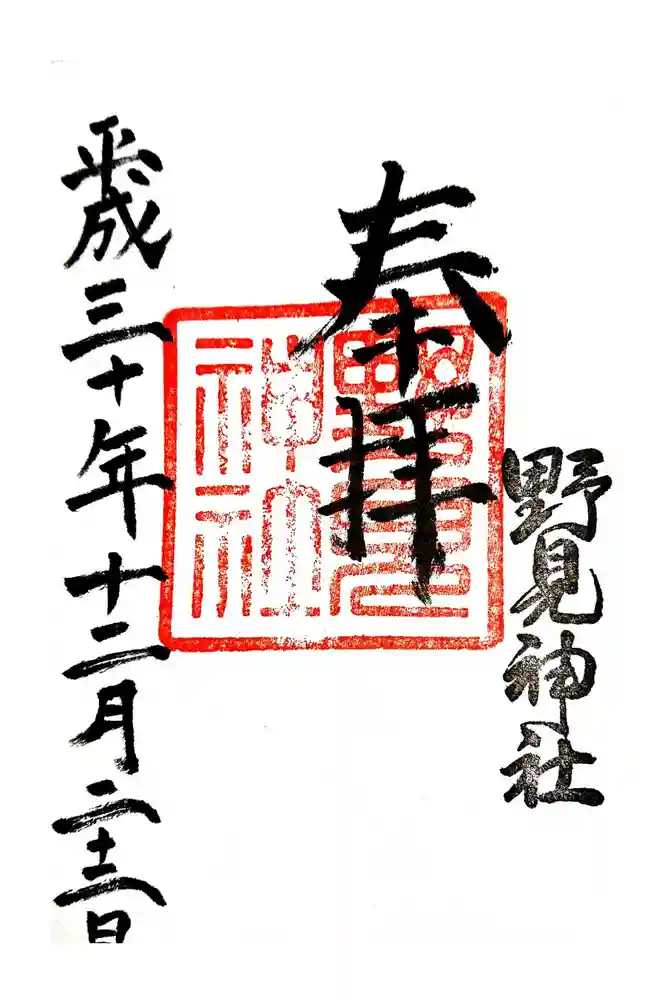 野見神社
奉拝
野見
神社
平成三十年十二月二十三日